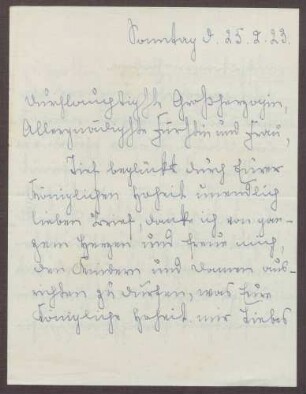 Sonntag d. 25. 2. 23.
Durchlauchtigste Großherzogin,
Allergnädigste Fürstin und Frau,
Tief beglückt durch Eurer
Königlichen Hoheit unendlich
lieben Brief, danke ich von gan-
zem Herzen und freue mich,
den Kindern und Damen aus-
richten zu dürfen, was Eure
Königliche Hoheit mir Liebes